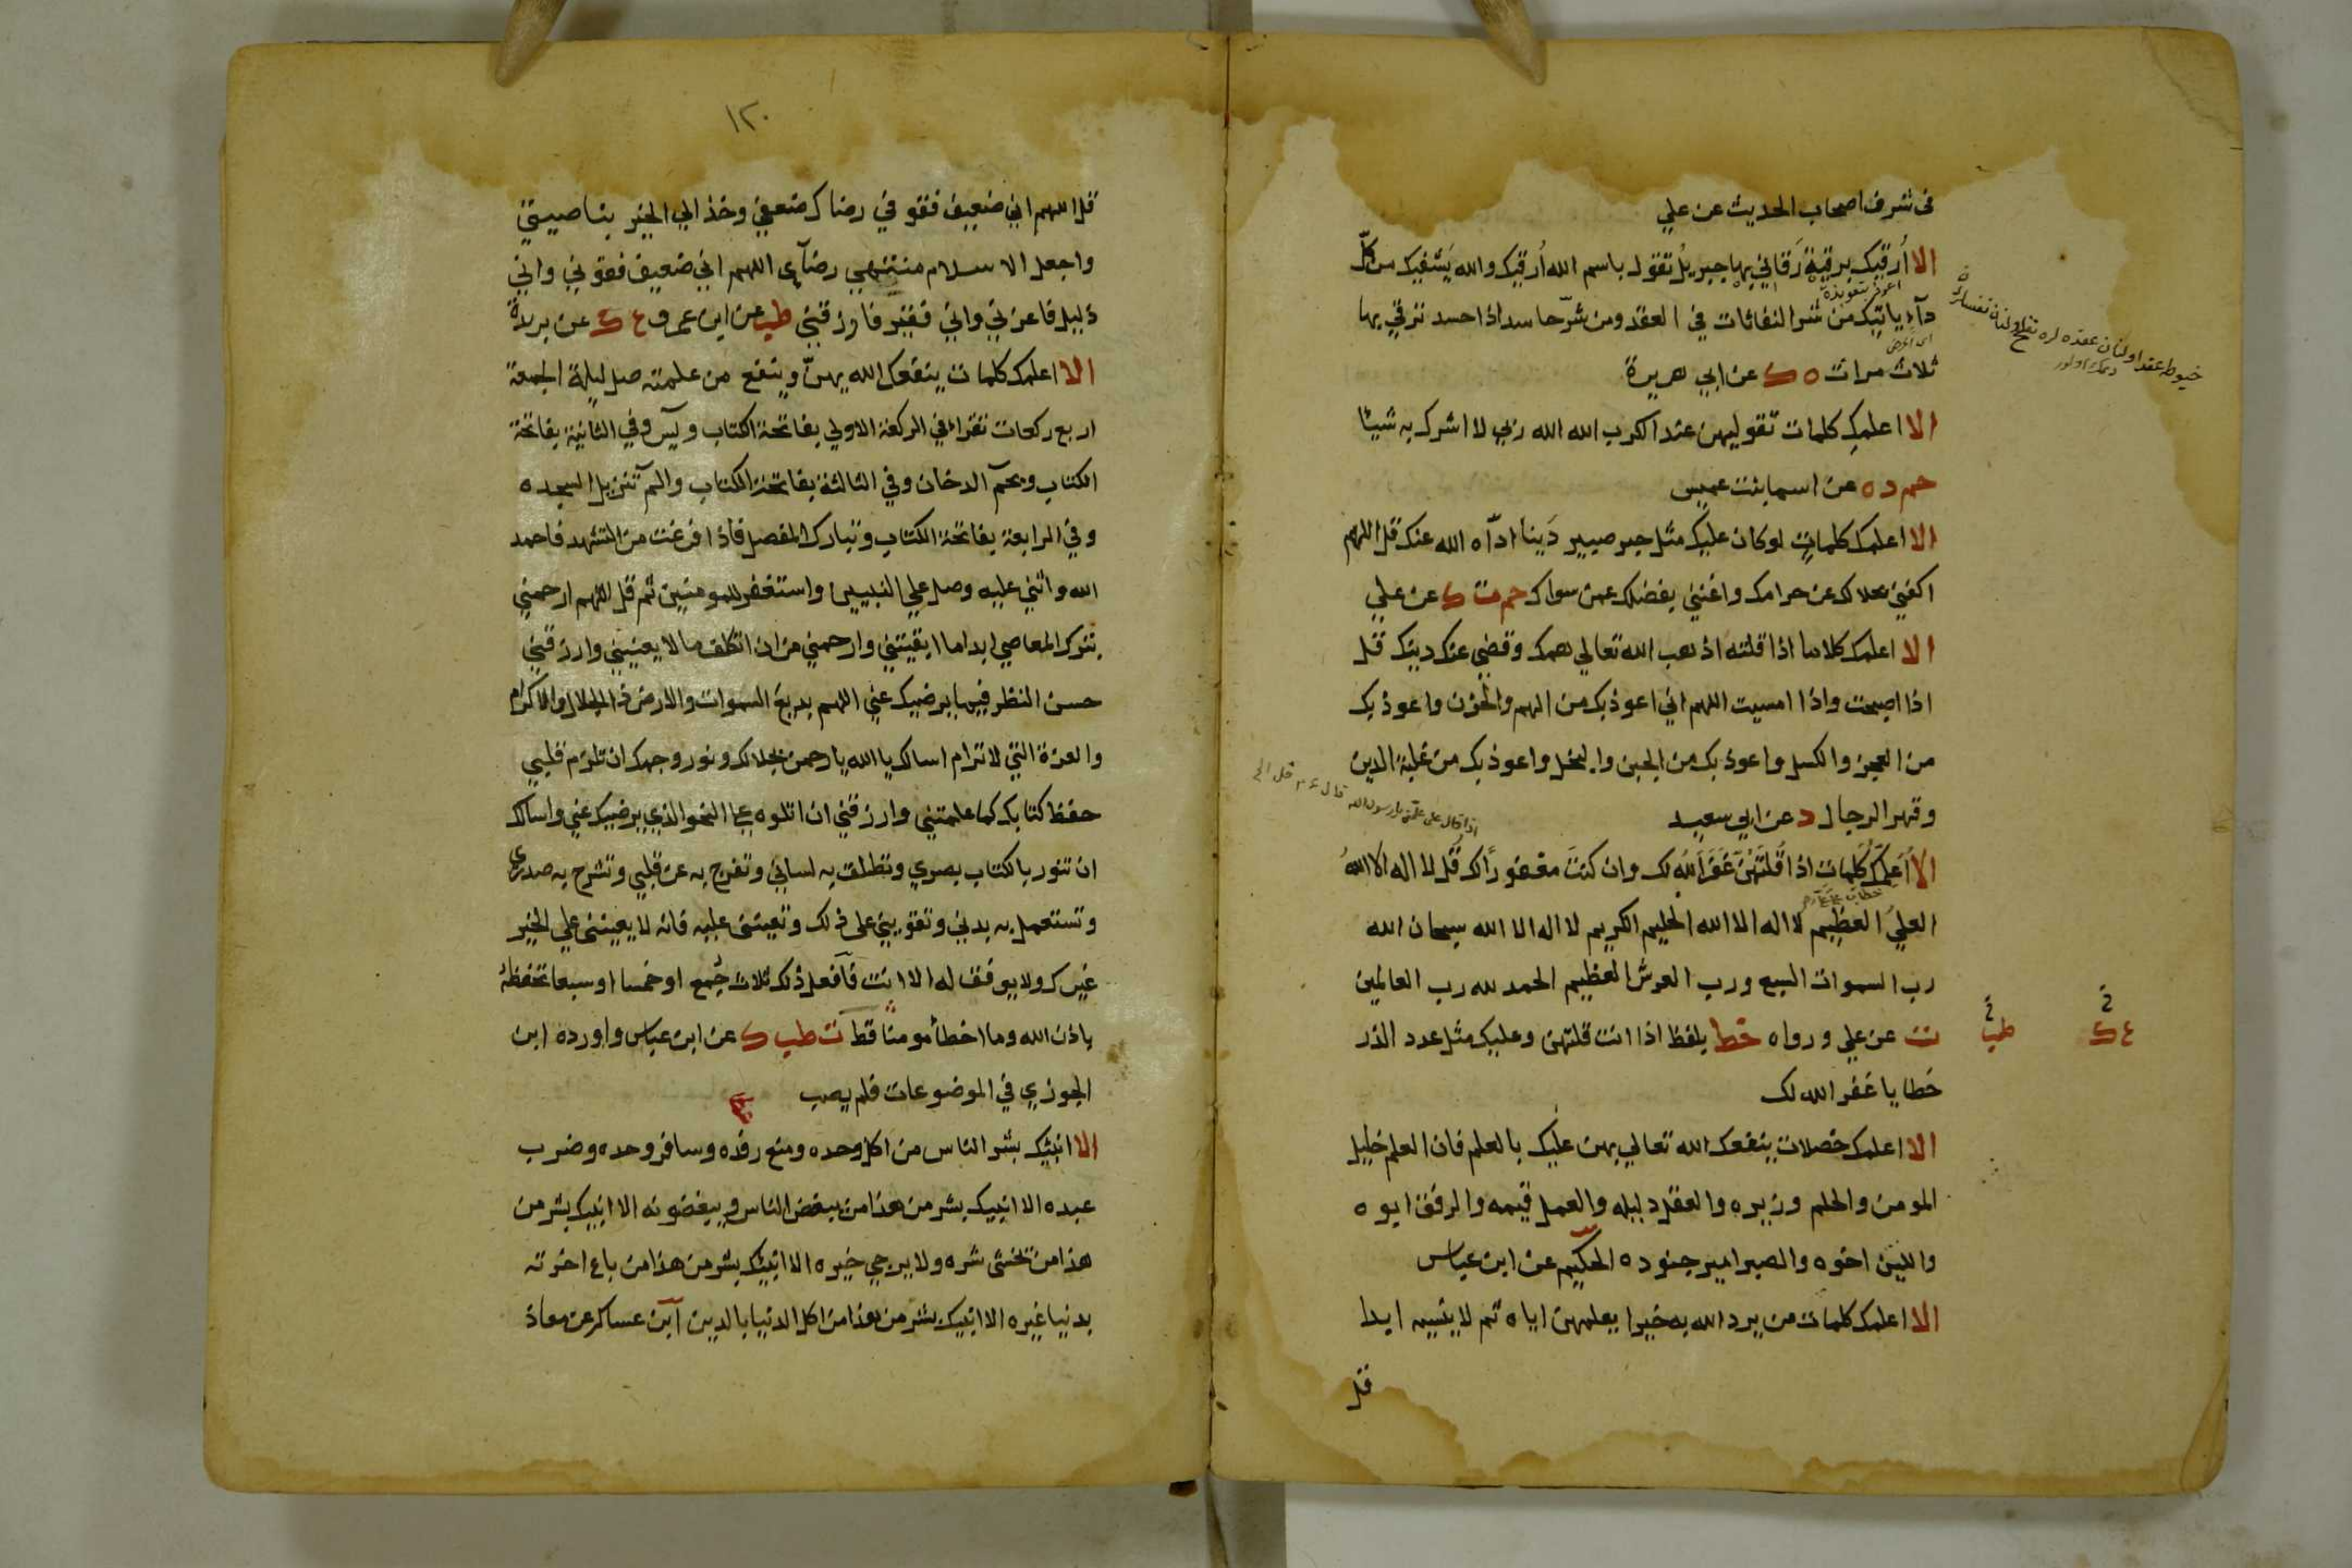 فى شرف اصحاب الحديث عن علي
الا اُرقيك برقية رَقاني بها جبريلُ تقول باسم الله اُرقيك والله يَشفيك من كلّ
اعوذ بتعويذة
دآء ياتيك من شر النفاثات في العقد ومن شرّ حاسد اذا حسد ترقي بها
ثلاث مرات ه ك عن ابي هريرة
الا اعلمكِ كلمات تقوليهن عند الكرب الله الله ربي لا اشرك به شيئا
حم د ه عن اسما بنت عميس
الا اعلمك كلماتٍ لو كان عليك مثل جبر صبير دَينا ادّاه الله عنك قل اللهم
اكفني بحلالك عن حرامك واغنني بفضلك عمن سواك حم ت ك عن علي
الا اعلمك كلاما اذا قلته اذهب الله تعالي همك وقضي عنك دينك قل
اذا اصبحت واذا امسيت اللهم اني اعوذ بك من الهم والحزن واعوذ بك
من العجز والكسل واعوذ بك من الجبن والبخل واعوذ بك من غلبة الدين
وقهر الرجال د عن ابي سعيد
الا اُعلمك كلمات اذا قُلتَهُنّ غَفَرَ اللهُ لك وان كنتَ مغفورًا لك قُل لا اله الا اللهُ
العليُ العظيم لا اله الا الله الحليم الكريم لا اله الا الله سبحان الله
رب السموات السبع ورب العرش العظيم الحمد لله رب العالمين
ت عن علي ورواه خط بلفظ اذا انت قلتهن وعليك مثل عدد الذر
طب
ع ك
خطايا غفر الله لك
الا اعلمك خصلات ينفعك الله تعالي بهن عليك بالعلم فان العلم خليل
المومن والحلم وزيره والعقل دليله والعمل قيمه والرفق ابوه
واللين اخوه والصبر امير جنوده الحكيم عن ابن عباس
الا اعلمك كلمات من يرد الله به خيرا يعلمهن اياه ثم لا ينسيه ابدا
قل
١٢٠
قل اللهم اني ضعيف فقو في رضاك ضعفي وخذ الي الخير بناصيتي
واجعل الاسلام منتهي رضآي اللهم اني ضعيف فقوني واني
ذليل فاعزني واني فقير فارزقني طب عن ابن عمرو ع ك عن بريدة
الا اعلمك كلمات ينفعك الله بهنّ وينفع من علمته صل ليلة الجمعة
اربع ركعات تقرا في الركعة الاولي بفاتحة الكتاب ويسٓ وفي الثانية بفاتحة
الكتاب وبحمٓ الدخان وفي الثالثة بفاتحة الكتاب والمٓ تنزيل السجده
وفي الرابعة بفاتحة الكتاب وتبارك المفصل فاذا فرغت من التشهد فاحمد
الله واثني عليه وصل علي النبيين واستغفر للمومنين ثم قل اللهم ارحمني
بترك المعاصي ابدا ما ابقيتني وارحمني من ان اتكلف ما لا يعنيني وارزقني
حسن النظر فيما يرضيك عني اللهم بديع السموات والارض ذا الجلال والاكرام
والعزة التي لا ترام اسالك يا الله يا رحمن بجلالك ونور وجهك ان تلزم قلبي
حفظ كتابك كما علمتني وارزقني ان اتلوه علي النحو الذي يرضيك عني واسالك
ان تنور بالكتاب بصري وتطلق به لساني وتفرج به عن قلبي وتشرح به صدري
وتستعمل به بدني وتقويني على ذلك وتعينني عليه فانه لا يعينني علي الخير
غيرك ولا يوفق له الا انت فافعل ذلك ثلاث جُمع او خمسا او سبعا تحفظهُ
باذن الله وما اخطأ مومنًا قط ت طب ك عن ابن عباس واورده ابن
الجوزي في الموضوعات فلم يصب
الا انبئك بشر الناس من اكل وحده ومنع رفده وسافر وحده وضرب
عبده الا انبيك بشر من هذا من يبغض الناس ويبغضونه الا انبيك بشر من
هذا من تخشى شره ولا يرجي خيره الا انبيك بشر من هذا من باع اخرته
بدنيا غيره الا انبيك بشر من هذا من اكل الدنيا بالدين ابن عساكر عن معاذ